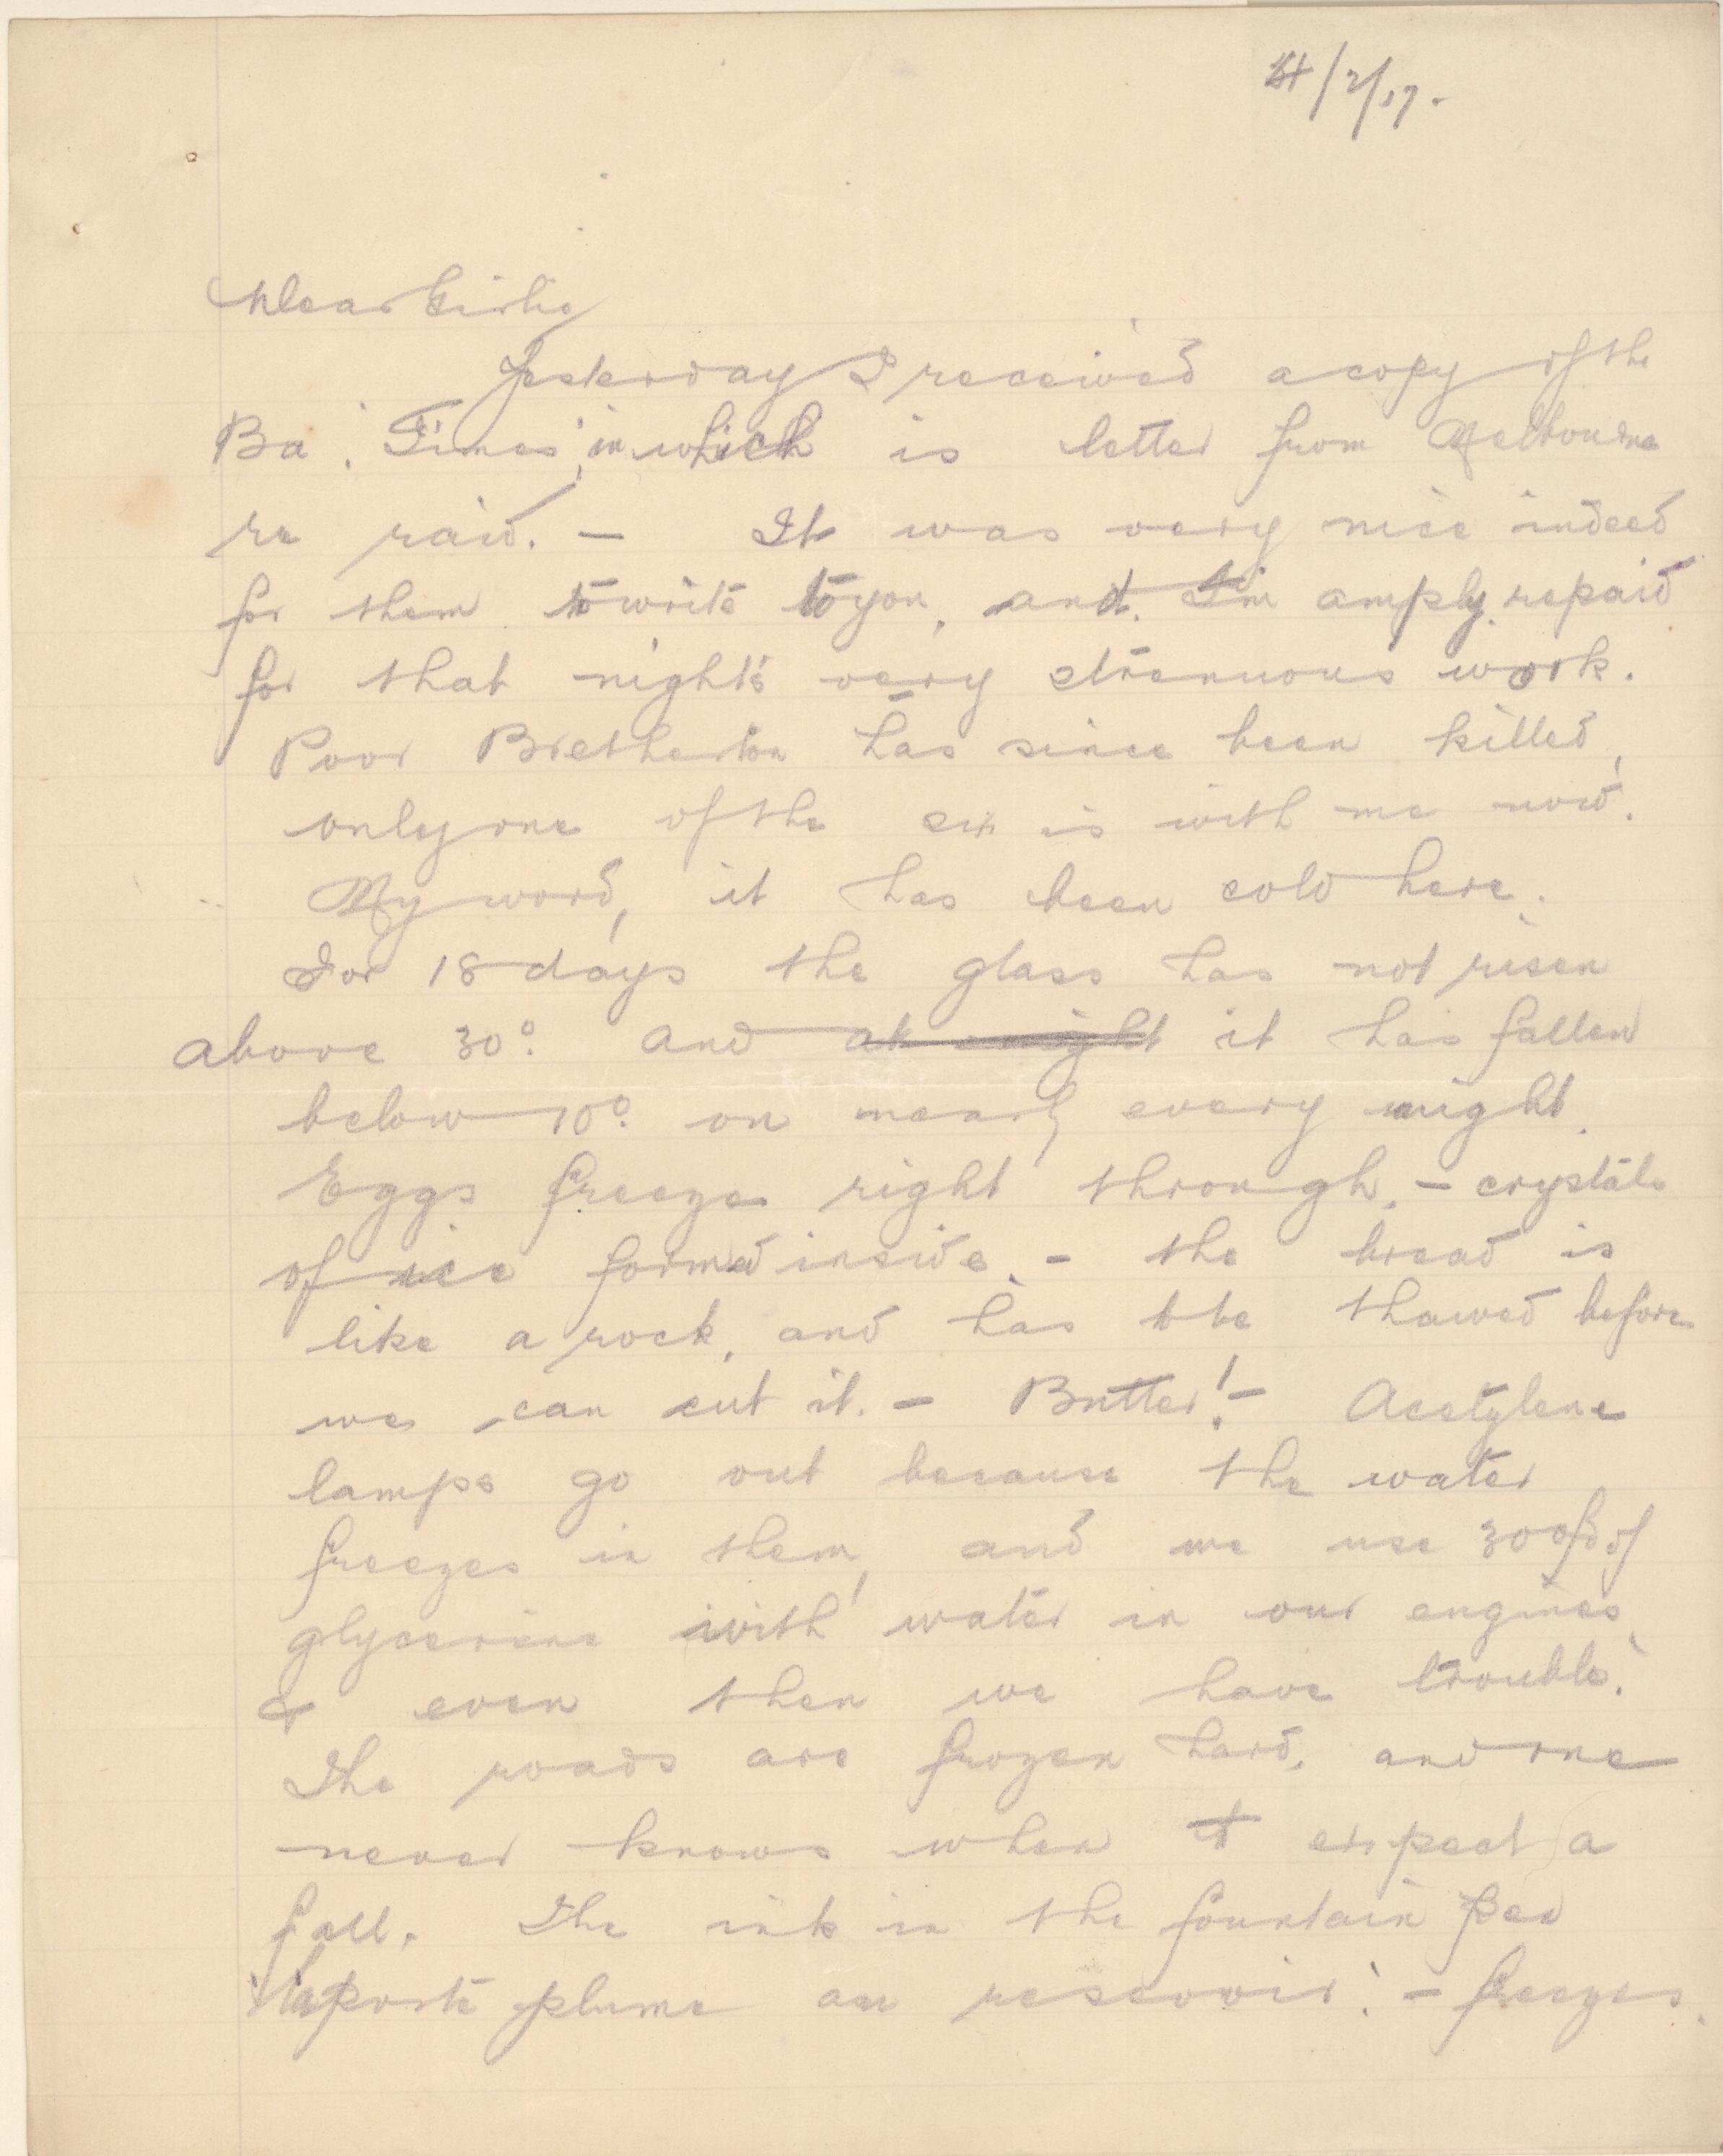 4/2/17.
Dear Girlie
Yesterday I received a copy of the
Ba. 'Times', in which is letter from Melbourne
re raid. - It was very nice indeed
for them to write to you, and I'm amply repaid
for that night's very strenuous work.
Poor Bretherton has since been killed,
only one of the six is with me now.
My word, it has been cold here.
For 18 days the glass has not risen
above 30°. and at night it has fallen
below 10°. on nearly every night.
Eggs freeze right through, - crystals
of ice formed inside, - the bread is
like a rock, and has to be thawed before
we can cut it. - Butter! - Acetylene
lamps go out because the water
freezes in them, and we use 30% of
glycerine with water in our engines,
& even then we have trouble.
The roads are frozen hard, and one
never knows when to expect a
fall. The ink in the fountain pen
'la porte plume au reservoir' - freezes.